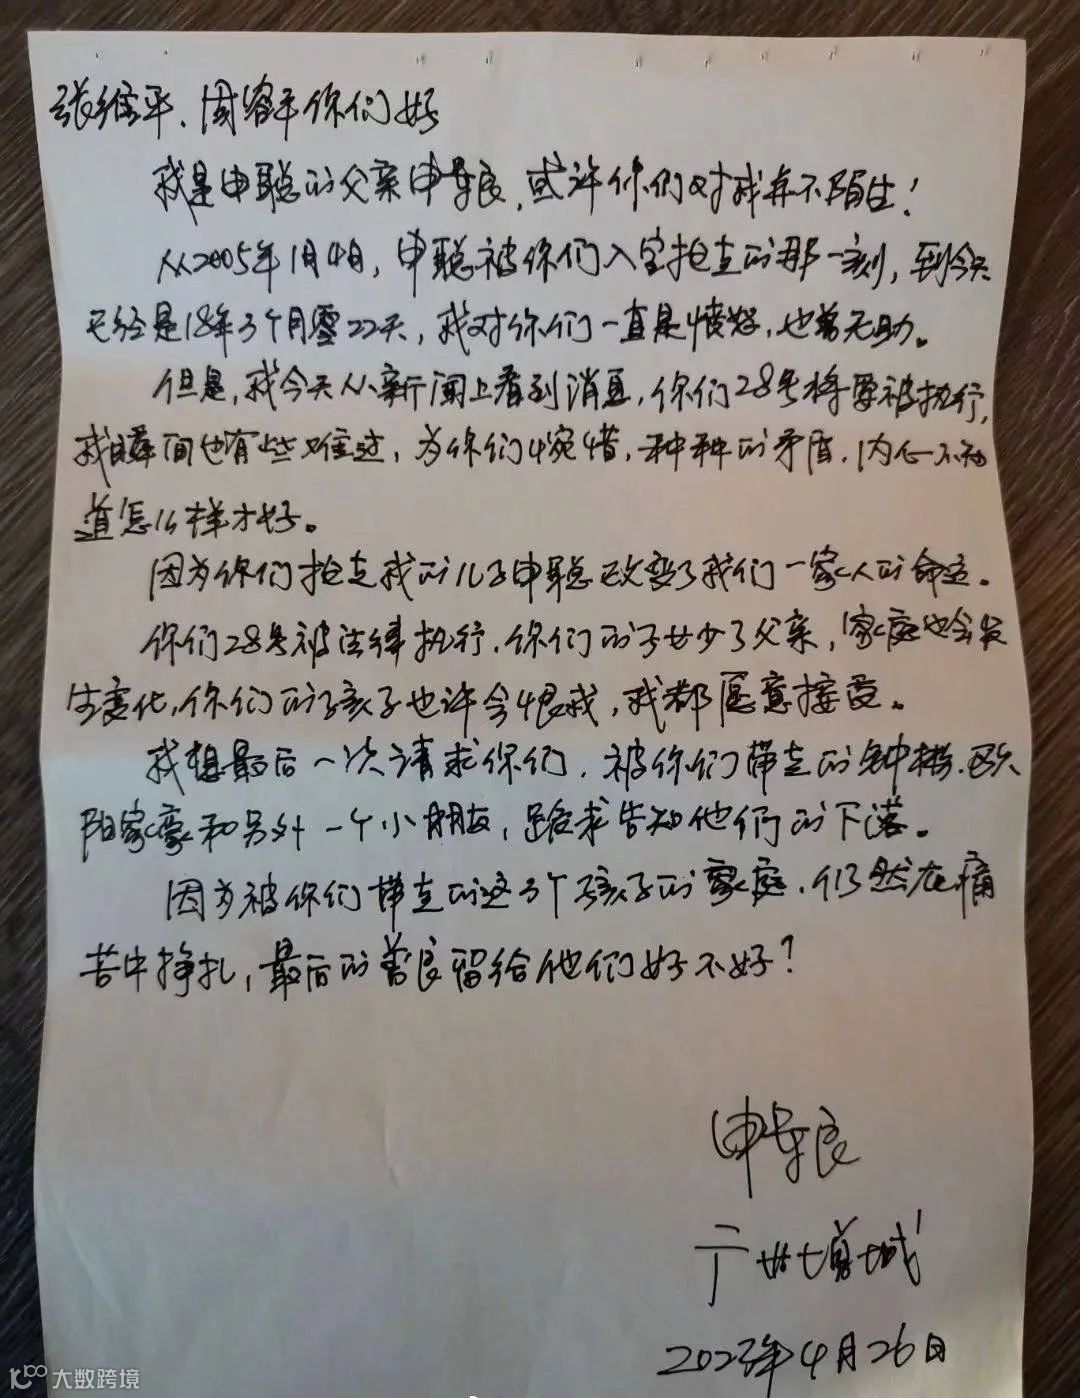 张维平、周容平你们好
我是申聪的父亲申军良，或许你们对我并不陌生！
从2005年1月4日，申聪被你们入室抢走的那一刻，到今天
已经是18年3个月零22天，我对你们一直是愤怒，也曾无助。
但是，我今天从新闻上看到消息，你们28号将要被执行，
我瞬间也有些难过，为你们惋惜，种种的矛盾，内心不知
道怎么样才好。
因为你们抢走我的儿子申聪改变了我们一家人的命运。
你们28号被法律执行，你们的子女少了父亲，家庭也会发
生变化，你们的孩子也许会恨我，我都愿意接受。
我想最后一次请求你们，被你们带走的钟彬、欧
阳家豪和另外一个小朋友，跪求告知他们的下落。
因为被你们带走的这3个孩子的家庭，仍然在痛
苦中挣扎，最后的善良留给他们好不好？
申军良
广州增城
2023年4月26日
大数跨境